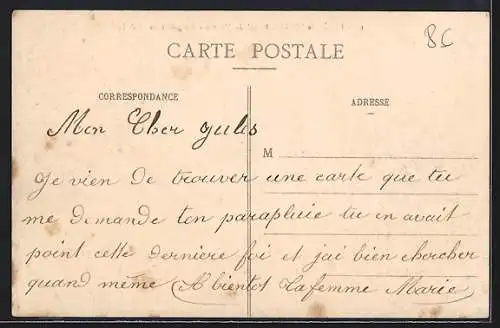 8C
CARTE POSTALE
CORRESPONDANCE
ADRESSE
Mon Cher Jules
M
Je vien de trouver une carte que tu
me demande ton parapluie tu en avait
point cette derniere foi et jai bien chercher
quand même A bientot Ta femme Marie